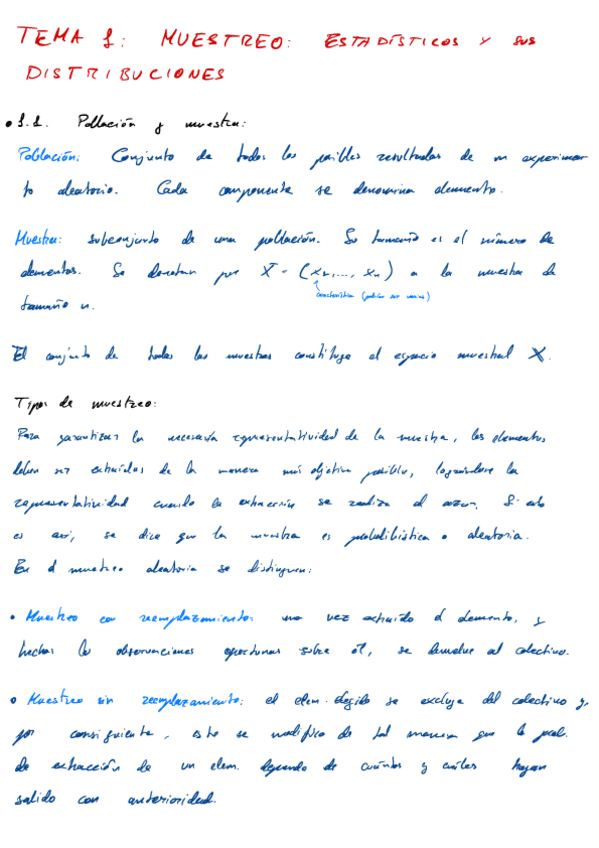 TEMA 1: MUESTREO: ESTADÍSTICOS Y SUS
DISTRIBUCIONES
• 1.1. Población y muestra:
Población: Conjunto de todos los posibles resultados de un experimen
to aleatorio. Cada componente se denomina elemento.
Muestra: subconjunto de una población. Su tamaño es el número de
elementos. Se denotan por X = (x₁,..., xₙ) a la muestra de
característica (podrían ser varias)
tamaño n.
El conjunto de todas las muestras constituye el espacio muestral X.
Tipos de muestreo:
Para garantizar la necesaria representatividad de la muestra, los elementos
deben ser extraídos de la manera más objetiva posible, lográndose la
representatividad cuando la extracción se realiza al azar. Si esto
es así, se dice que la muestra es probabilística o aleatoria.
En el muestreo aleatorio se distinguen:
• Muestreo con reemplazamiento: una vez extraído el elemento, y
hechas las observaciones oportunas sobre él, se devuelve al colectivo.
• Muestreo sin reemplazamiento: el elem. elegido se excluye del colectivo y,
por consiguiente, este se modifica de tal manera que la prob.
de extracción de un elem. depende de cuántos y cuáles hayan
salido con anterioridad.